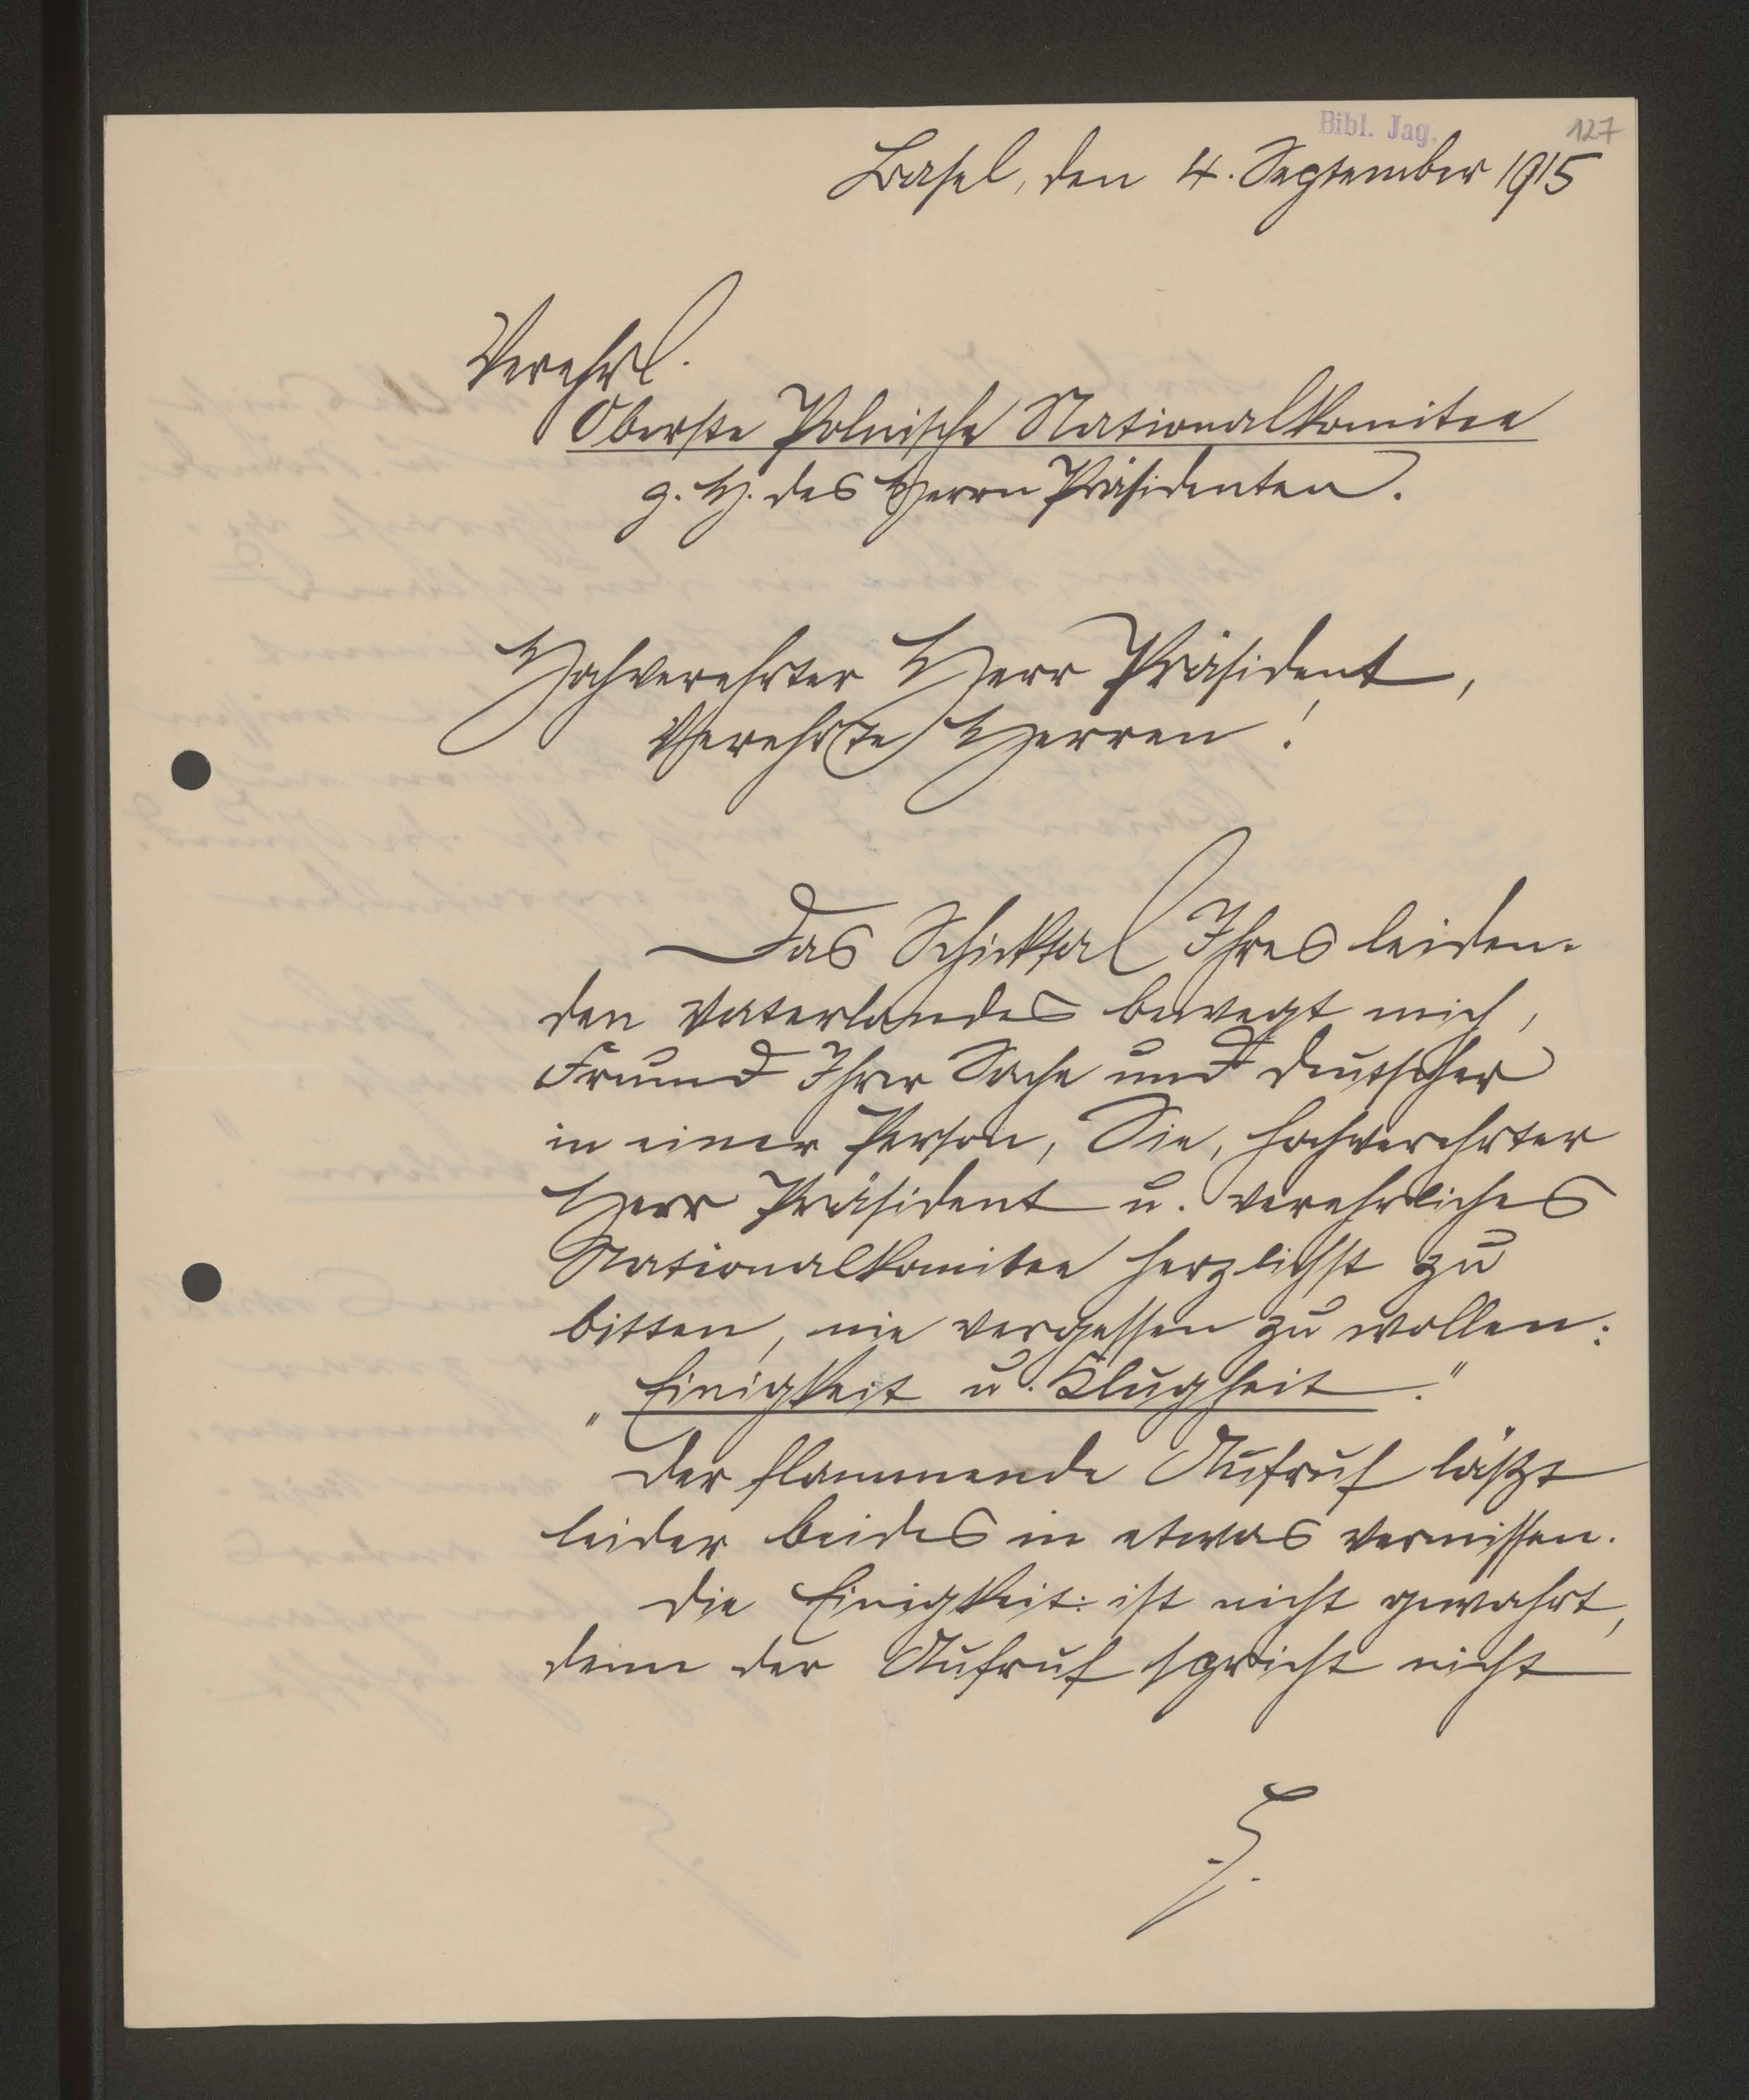 Bibl. Jag.
127
Basel, den 4. September 1915
Verehrl.
Oberste Polnische Nationalkomitee
z. H. des Herrn Präsidenten.
Hochverehrter Herr Präsident,
Verehrte Herren!
Das Schicksal Ihres leiden-
den Vaterlandes bewegt mich,
Freund Ihrer Sache und Deutscher
in einer Person, Sie, hochverehrter
Herr Präsident u. verehrliches
Nationalkomitee herzlichst zu
bitten, nie vergessen zu wollen:
„Einigkeit u. Klugheit."
Der flammende Aufruf läßt
leider beides in etwas vermissen.
Die Einigkeit: ist nicht gewahrt,
denn der Aufruf spricht nicht